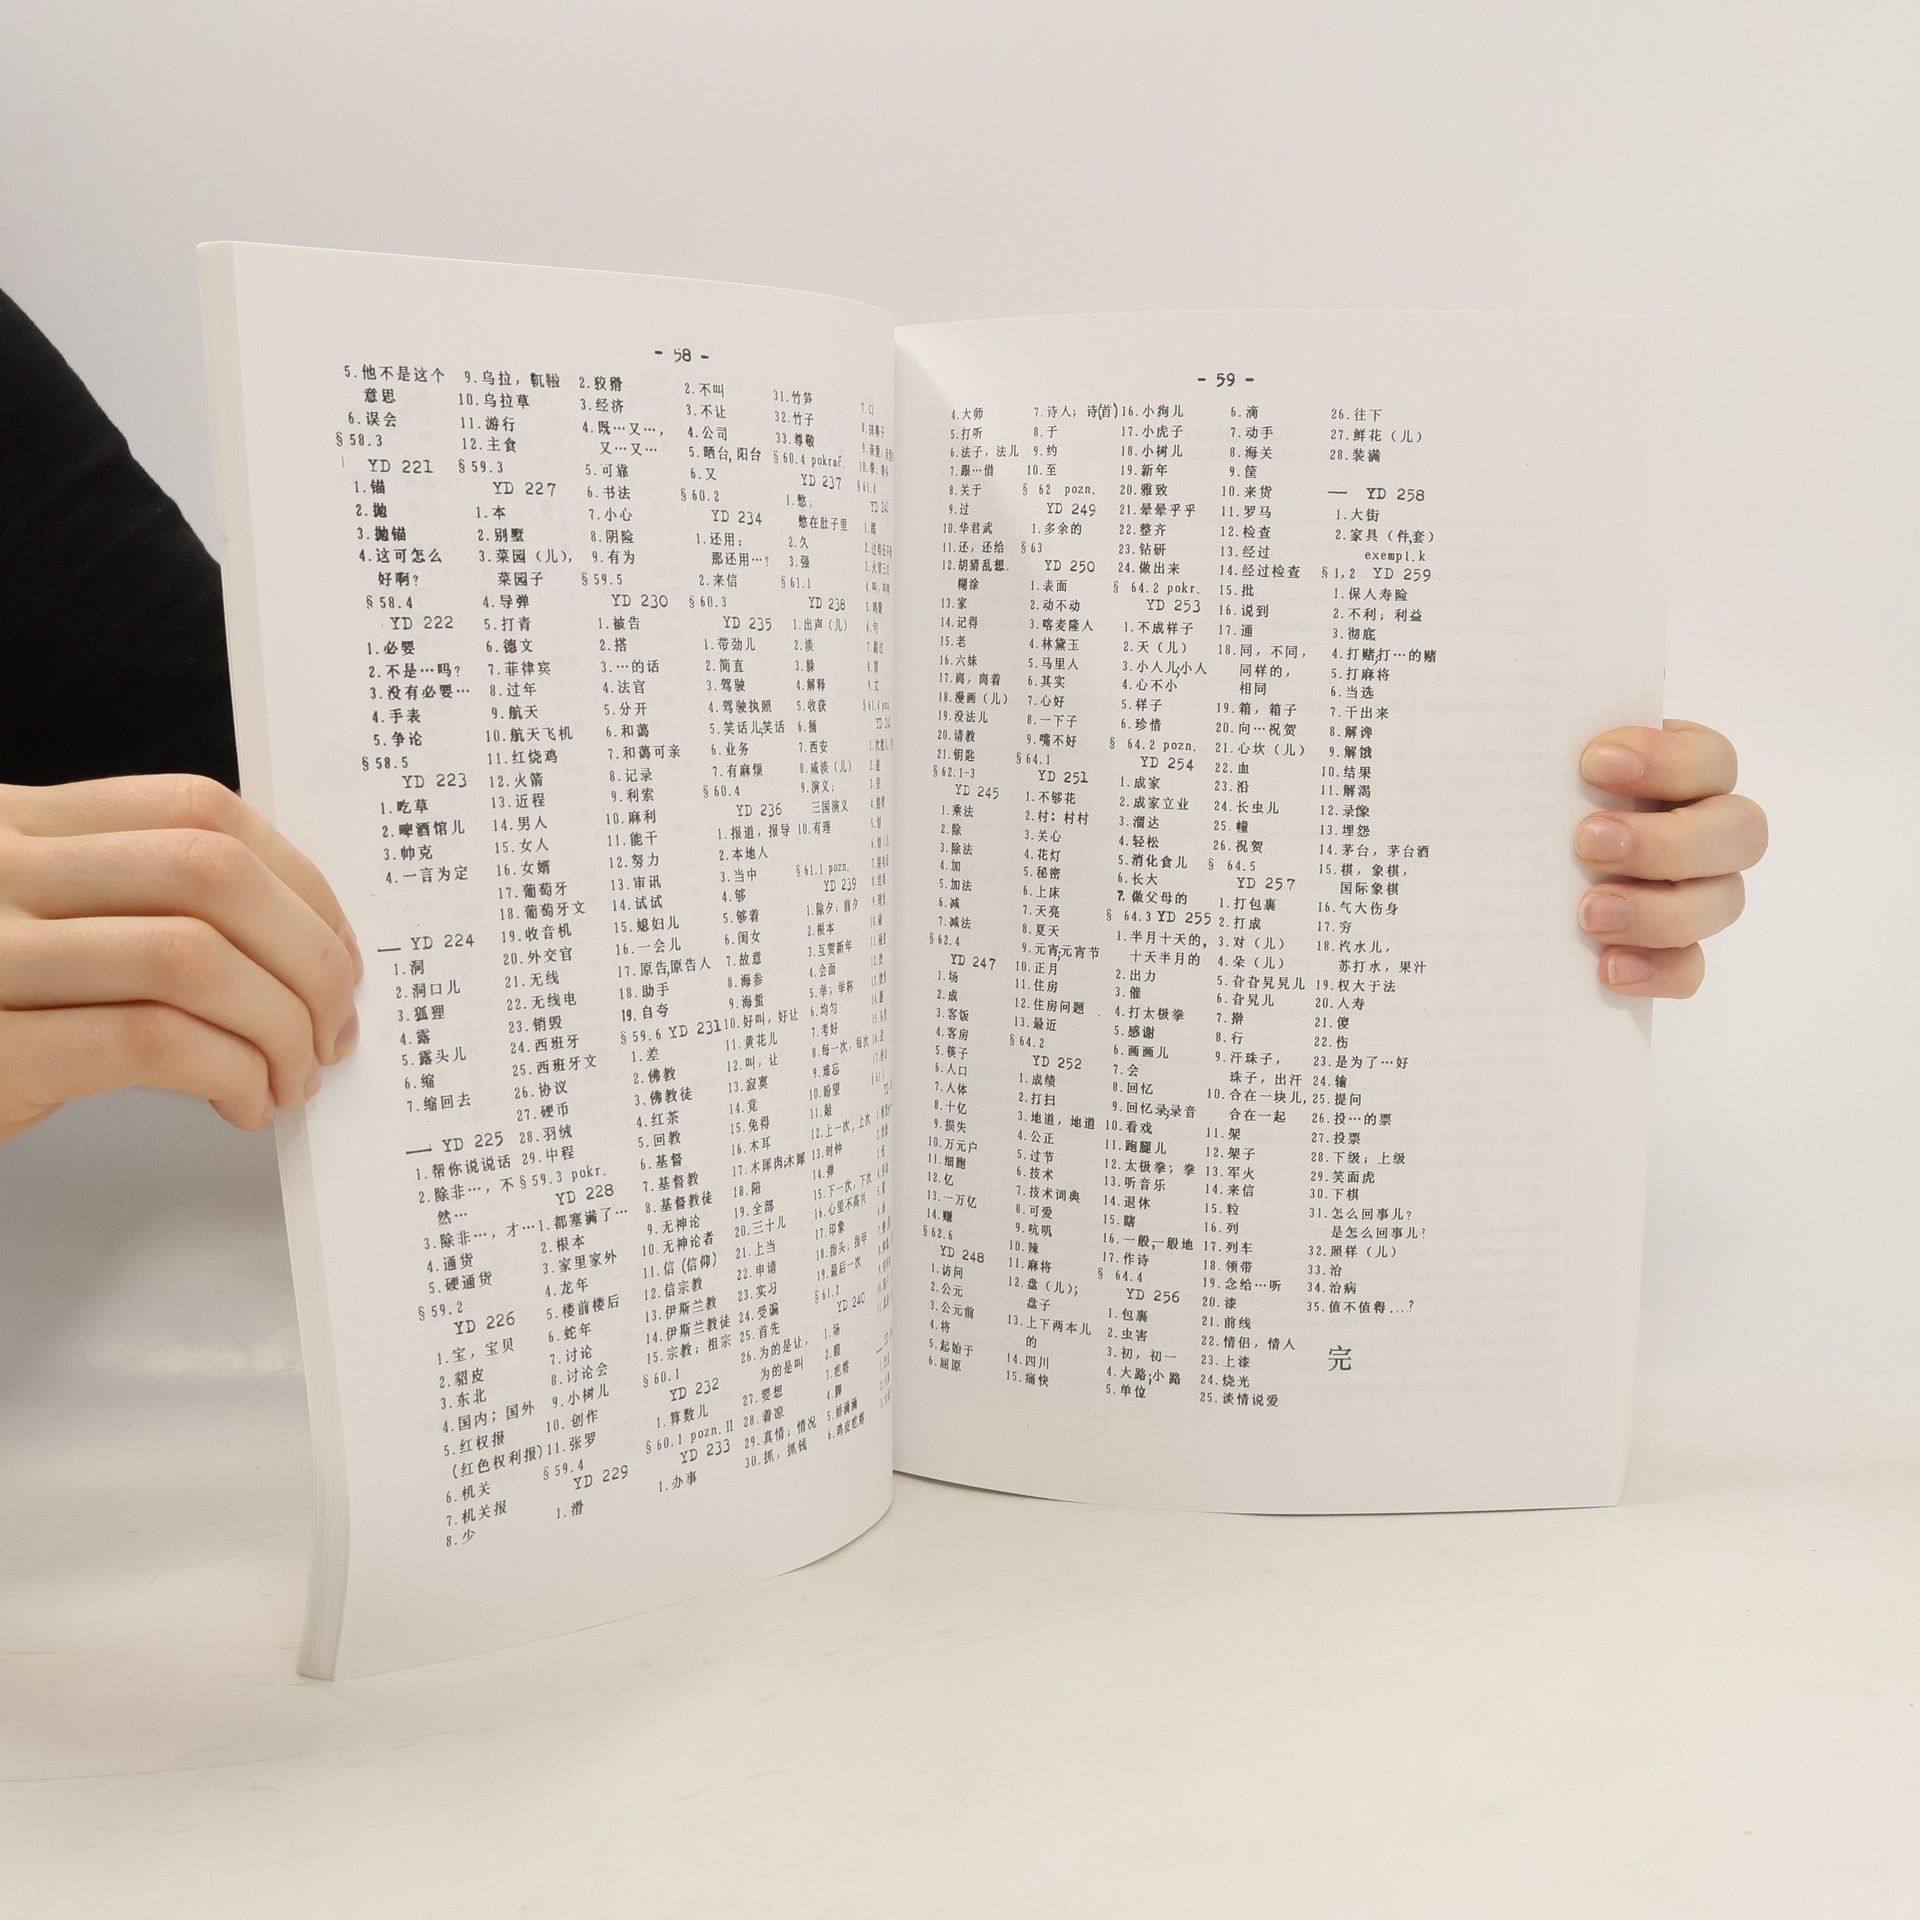 - 58 -
5.他不是这个
意思
6.误会
§58.3
YD 221
1.锚
2.抛
3.抛锚
4.这可怎么
好啊?
§58.4
YD 222
1.必要
2.不是…吗?
3.没有必要…
4.手表
5.争论
§58.5
YD 223
1.吃草
2.啤酒馆儿
3.帅克
4.一言为定
YD 224
1.洞
2.洞口儿
3.狐狸
4.露
5.露头儿
6.缩
7.缩回去
YD 225
1.帮你说说话
2.除非…，不
然…
3.除非…，才…
4.通货
5.硬通货
§59.2
YD 226
1.宝，宝贝
2.貂皮
3.东北
4.国内；国外
5.红权报
(红色权利报)
6.机关
7.机关报
8.少
9.乌拉，
10.乌拉草
11.游行
12.主食
§59.3
YD 227
1.本
2.别墅
3.菜园（儿），
菜园子
4.导弹
5.打青
6.德文
7.菲律宾
8.过年
9.航天
10.航天飞机
11.红烧鸡
12.火箭
13.近程
14.男人
15.女人
16.女婿
17.葡萄牙
18.葡萄牙文
19.收音机
20.外交官
21.无线
22.无线电
23.销毁
24.西班牙
25.西班牙文
26.协议
27.硬币
28.羽绒
29.中程
§59.3 pokr.
YD 228
1.都塞满了…
2.根本
3.家里家外
4.龙年
5.楼前楼后
6.蛇年
7.讨论
8.讨论会
9.小树儿
10.创作
11.张罗
§59.4
YD 229
1.滑
2.狡猾
3.经济
4.既…又…，
又…又…
5.可靠
6.书法
7.小心
8.阴险
9.有为
§59.5
YD 230
1.被告
2.搭
3.…的话
4.法官
5.分开
6.和蔼
7.和蔼可亲
8.记录
9.利索
10.麻利
11.能干
12.努力
13.审讯
14.试试
15.媳妇儿
16.一会儿
17.原告,原告人
18.助手
19.自夸
§59.6 YD 231
1.差
2.佛教
3.佛教徒
4.红茶
5.回教
6.基督
7.基督教
8.基督教徒
9.无神论
10.无神论者
11.信(信仰)
12.信宗教
13.伊斯兰教
14.伊斯兰教徒
15.宗教；祖宗
§60.1
YD 232
1.算数儿
§60.1 pozn.II
YD 233
1.办事
2.不叫
3.不让
4.公司
5.晒台,阳台
6.又
§60.2
YD 234
1.还用；
那还用…?
2.来信
§60.3
YD 235
1.带劲儿
2.简直
3.驾驶
4.驾驶执照
5.笑话儿,笑话
6.业务
7.有麻烦
§60.4
YD 236
1.报道，报导
2.本地人
3.当中
4.够
5.够着
6.闺女
7.故意
8.海参
9.海蜇
10.好叫，好让
11.黄花儿
12.叫，让
13.寂寞
14.竟
15.免得
16.木耳
17.木犀肉;木犀
18.陪
19.全部
20.三十儿
21.上当
22.申请
23.实习
24.受骗
25.首先
26.为的是让，
为的是叫
27.要想
28.着凉
29.真情；情况
30.抓，抓钱
31.竹笋
32.竹子
33.尊敬
§60.4 pokrač.
YD 237
1.憋；
憋在肚子里
2.久
3.强
§61.1
YD 238
1.出声（儿）
2.淡
3.躲
4.解释
5.收获
6.捅
7.西安
8.咸淡（儿）
9.演义；
三国演义
10.有理
§61.1 pozn.
YD 239
1.除夕；前夕
2.根本
3.互贺新年
4.会面
5.举；举杯
6.均匀
7.考好
8.每一次，每次
9.难忘
10.盼望
11.敲
12.上一次，上次
13.时钟
14.弹
15.下一次，下次
16.心里不高兴
17.印象
18.指头；指甲
19.最后一次
§61.2
YD 240
1.场
2.瞪
3.疙瘩
4.脚
5.娇滴滴
6.鸡皮疙瘩
- 59 -
4.大师
5.打听
6.法子，法儿
7.跟…借
8.关于
9.过
10.华君武
11.还，还给
12.胡猜乱想.
糊涂
13.家
14.记得
15.老
16.六妹
17.离，离着
18.漫画（儿）
19.没法儿
20.请教
21.钥匙
§62.1-3
YD 245
1.乘法
2.除
3.除法
4.加
5.加法
6.减
7.减法
§62.4
YD 247
1.场
2.成
3.客饭
4.客房
5.筷子
6.人口
7.人体
8.十亿
9.损失
10.万元户
11.细胞
12.亿
13.一万亿
14.赚
§62.6
YD 248
1.访问
2.公元
3.公元前
4.将
5.起始于
6.屈原
7.诗人；诗(首)
8.于
9.约
10.至
§ 62 pozn.
YD 249
1.多余的
§63
YD 250
1.表面
2.动不动
3.喀麦隆人
4.林黛玉
5.马里人
6.其实
7.心好
8.一下子
9.嘴不好
§64.1
YD 251
1.不够花
2.村；村村
3.关心
4.花灯
5.秘密
6.上床
7.天亮
8.夏天
9.元宵;元宵节
10.正月
11.住房
12.住房问题
13.最近
§64.2
YD 252
1.成绩
2.打扫
3.地道，地道
4.公正
5.过节
6.技术
7.技术词典
8.可爱
9.吭叽
10.辣
11.麻将
12.盘（儿）；
盘子
13.上下两本儿
的
14.四川
15.痛快
16.小狗儿
17.小虎子
18.小树儿
19.新年
20.雅致
21.晕晕乎乎
22.整齐
23.钻研
24.做出来
§ 64.2 pokr.
YD 253
1.不成样子
2.天（儿）
3.小人儿;小人
4.心不小
5.样子
6.珍惜
§ 64.2 pozn.
YD 254
1.成家
2.成家立业
3.溜达
4.轻松
5.消化食儿
6.长大
7.做父母的
§ 64.3 YD 255
1.半月十天的，
十天半月的
2.出力
3.催
4.打太极拳
5.感谢
6.画画儿
7.会
8.回忆
9.回忆录;录音
10.看戏
11.跑腿儿
12.太极拳；拳
13.听音乐
14.退休
15.瞎
16.一般,一般地
17.作诗
§ 64.4
YD 256
1.包裹
2.虫害
3.初，初一
4.大路;小路
5.单位
6.滴
7.动手
8.海关
9.筐
10.来货
11.罗马
12.检查
13.经过
14.经过检查
15.批
16.说到
17.通
18.同，不同，
同样的，
相同
19.箱，箱子
20.向…祝贺
21.心坎（儿）
22.血
23.沿
24.长虫儿
25.幢
26.祝贺
§ 64.5
YD 257
1.打包裹
2.打成
3.对（儿）
4.朵（儿）
5.旮旮旯旯儿
6.旮旯儿
7.擀
8.行
9.汗珠子，
珠子，出汗
10.合在一块儿，
合在一起
11.架
12.架子
13.军火
14.来信
15.粒
16.列
17.列车
18.领带
19.念给…听
20.漆
21.前线
22.情侣，情人
23.上漆
24.烧光
25.谈情说爱
26.往下
27.鲜花（儿）
28.装满
YD 258
1.大街
2.家具（件,套）
exempl.k
§1,2 YD 259
1.保人寿险
2.不利；利益
3.彻底
4.打赌;打…的赌
5.打麻将
6.当选
7.干出来
8.解谗
9.解饿
10.结果
11.解渴
12.录像
13.埋怨
14.茅台，茅台酒
15.棋，象棋，
国际象棋
16.气大伤身
17.穷
18.汽水儿，
苏打水，果汁
19.权大于法
20.人寿
21.傻
22.伤
23.是为了…好
24.输
25.提问
26.投…的票
27.投票
28.下级；上级
29.笑面虎
30.下棋
31.怎么回事儿?
是怎么回事儿?
32.照样（儿）
33.治
34.治病
35.值不值得...?
完